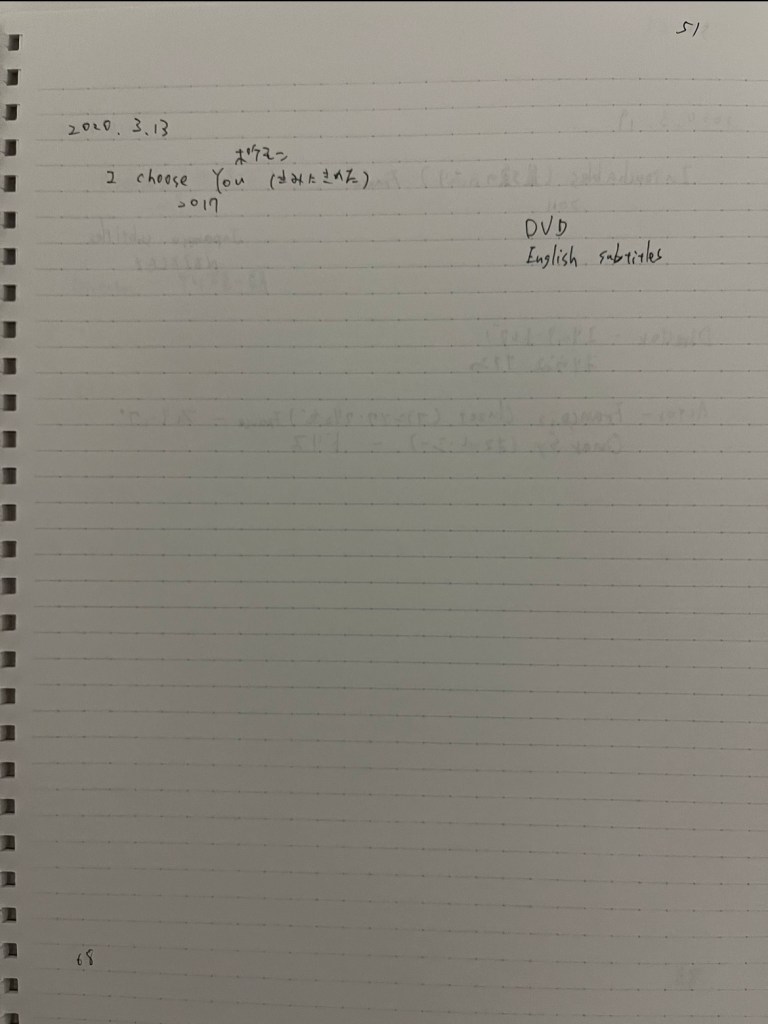 51
2020. 3.13
ポケモン
I choose You (きみにきめた)
2017
DVD
English subtitles
68